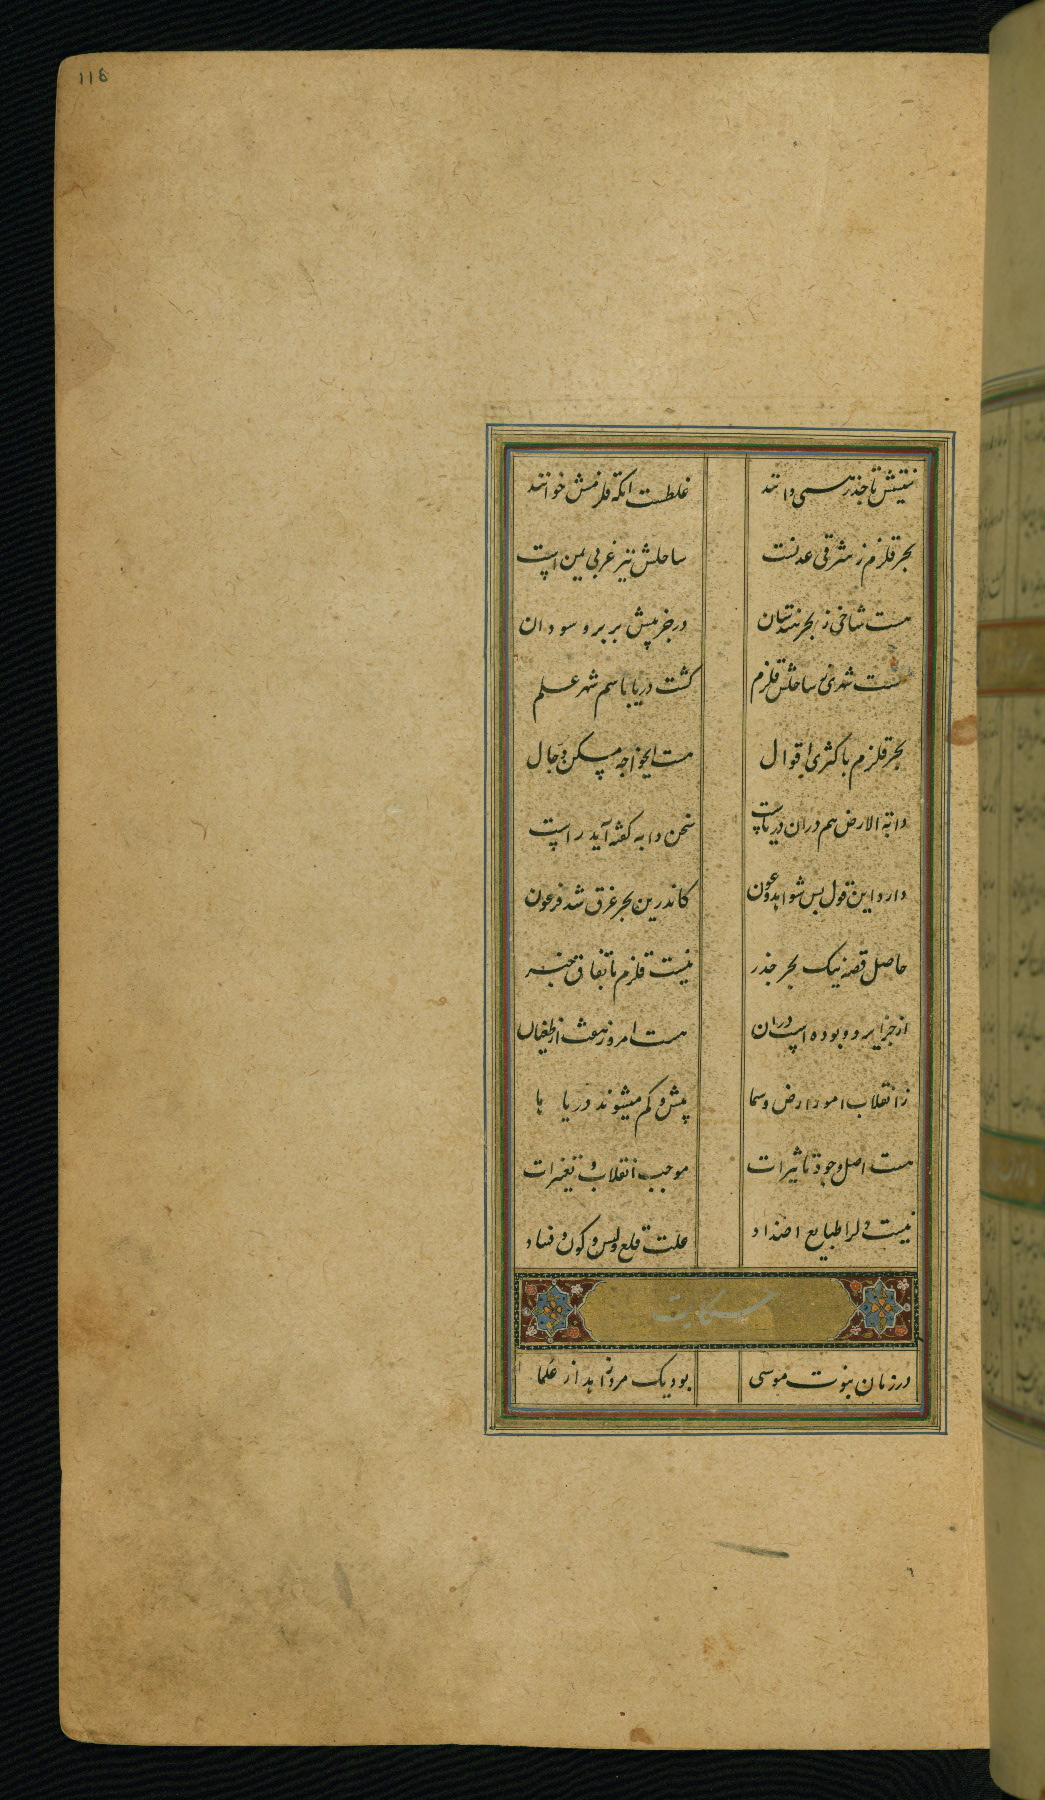 118
تا جذر همی دانند غلطست انکه قلزمش خوانند
بحر قلزم ز شرقی عدنست ساحلش نیز غربی یمن است
هست شاخی ز بحر هندستان در خر پیش بربر و سودان
هست شهری بساحلش قلزم گشت دریا باسم شهر علم
بحر قلزم باکثری اقوال هست ایخواجه مسکن دجال
دابة الارض هم دران دریاست سخن دابه گفته آید راست
دارد این قول بس شواهد و عون کاندرین بحر غرق شد فرعون
حاصل قصه نیک بحر جذر نیست قلزم باتفاق
از جزایر دو بوده است دران هست امروز هفت از طغیان
ز انقلاب امور ارض و سما بیش و کم میشوند دریا ها
هست اصل وجود تاثیرات موجب انقلاب و تغیرات
نیست ولرا طبایع اضداد علت قلع و لبس و کون و فساد
حکایت
در زمان نبوت موسی بود یک مرد زاهد از علما